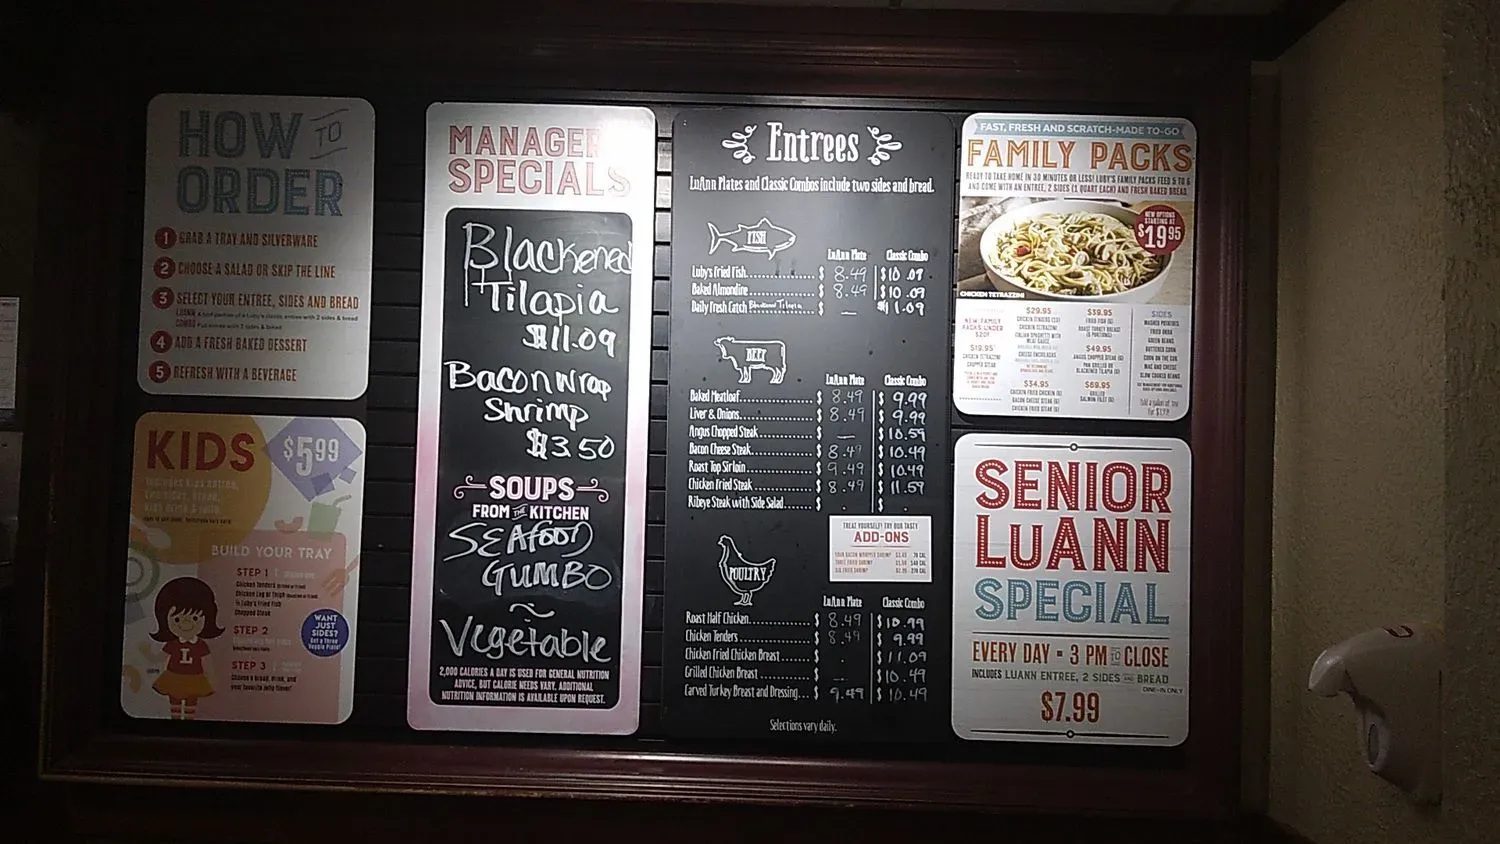 HOW TO
ORDER
1 GRAB A TRAY AND SILVERWARE
2 CHOOSE A SALAD OR SKIP THE LINE
3 SELECT YOUR ENTREE, SIDES AND BREAD
4 ADD A FRESH BAKED DESSERT
5 REFRESH WITH A BEVERAGE
KIDS
$5.99
BUILD YOUR TRAY
STEP 1
Chopped Steak
STEP 2
STEP 3
WANT
JUST
SIDES?
Get a Three
Veggie Plate!
L
MANAGER
SPECIALS
Blackened
Tilapia
$11.09
Bacon wrap
Shrimp
$13.50
SOUPS
FROM THE KITCHEN
SEAFOOD
GUMBO
~
Vegetable
2,000 CALORIES A DAY IS USED FOR GENERAL NUTRITION
ADVICE, BUT CALORIE NEEDS VARY. ADDITIONAL
NUTRITION INFORMATION IS AVAILABLE UPON REQUEST.
Entrees
LuAnn Plates and Classic Combos include two sides and bread.
FISH
LuAnn Plate Classic Combo
Luby's Fried Fish $ 8.49 $10.09
Baked Almondine $ 8.49 $10.09
Daily Fresh Catch Blackened Tilapia $ — $11.09
BEEF
LuAnn Plate Classic Combo
Baked Meatloaf $ 8.49 $ 9.99
Liver & Onions $ 8.49 $ 9.99
Angus Chopped Steak $ — $10.59
Bacon Cheese Steak $ 8.49 $10.49
Roast Top Sirloin $ 9.49 $10.49
Chicken Fried Steak $ 8.49 $11.59
Ribeye Steak with Side Salad $ . $ .
TREAT YOURSELF! TRY OUR TASTY
ADD-ONS
POULTRY
LuAnn Plate Classic Combo
Roast Half Chicken $ 8.49 $10.99
Chicken Tenders $ 8.49 $ 9.99
Chicken Fried Chicken Breast $ . $11.09
Grilled Chicken Breast $ — $10.49
Carved Turkey Breast and Dressing $ 9.49 $10.49
Selections vary daily.
FAST, FRESH AND SCRATCH-MADE TO-GO
FAMILY PACKS
READY TO TAKE HOME IN 30 MINUTES OR LESS! LUBY'S FAMILY PACKS FEED 5 TO 6
AND COME WITH AN ENTREE, 2 SIDES (1 QUART EACH) AND FRESH BAKED BREAD.
NEW OPTIONS
STARTING AT
$19.95
CHICKEN TETRAZZINI
NEW FAMILY
PACKS UNDER
$20!
$19.95
CHICKEN
TETRAZZINI
CHOPPER STEAK
$29.95
CHICKEN TETRAZZINI
ITALIAN SPAGHETTI WITH
MEAT SAUCE
CHEESE ENCHILADAS
$34.95
CHICKEN FRIED CHICKEN (6)
BACON CHEESE STEAK (6)
CHICKEN FRIED STEAK (6)
$39.95
FRIED FISH (6)
ROAST TURKEY BREAST
$49.95
ANGUS CHOPPER STEAK (6)
PAN GRILLED OR
BLACKENED TILAPIA (6)
$69.95
GRILLED
SALMON FILET (6)
SIDES
MASHED POTATOES
FRIED OKRA
GREEN BEANS
BUTTERED CORN
CORN ON THE COB
MAC AND CHEESE
SLOW COOKED BEANS
SENIOR
LUANN
SPECIAL
EVERY DAY • 3 PM TO CLOSE
INCLUDES LUANN ENTREE, 2 SIDES AND BREAD
DINE-IN ONLY
$7.99